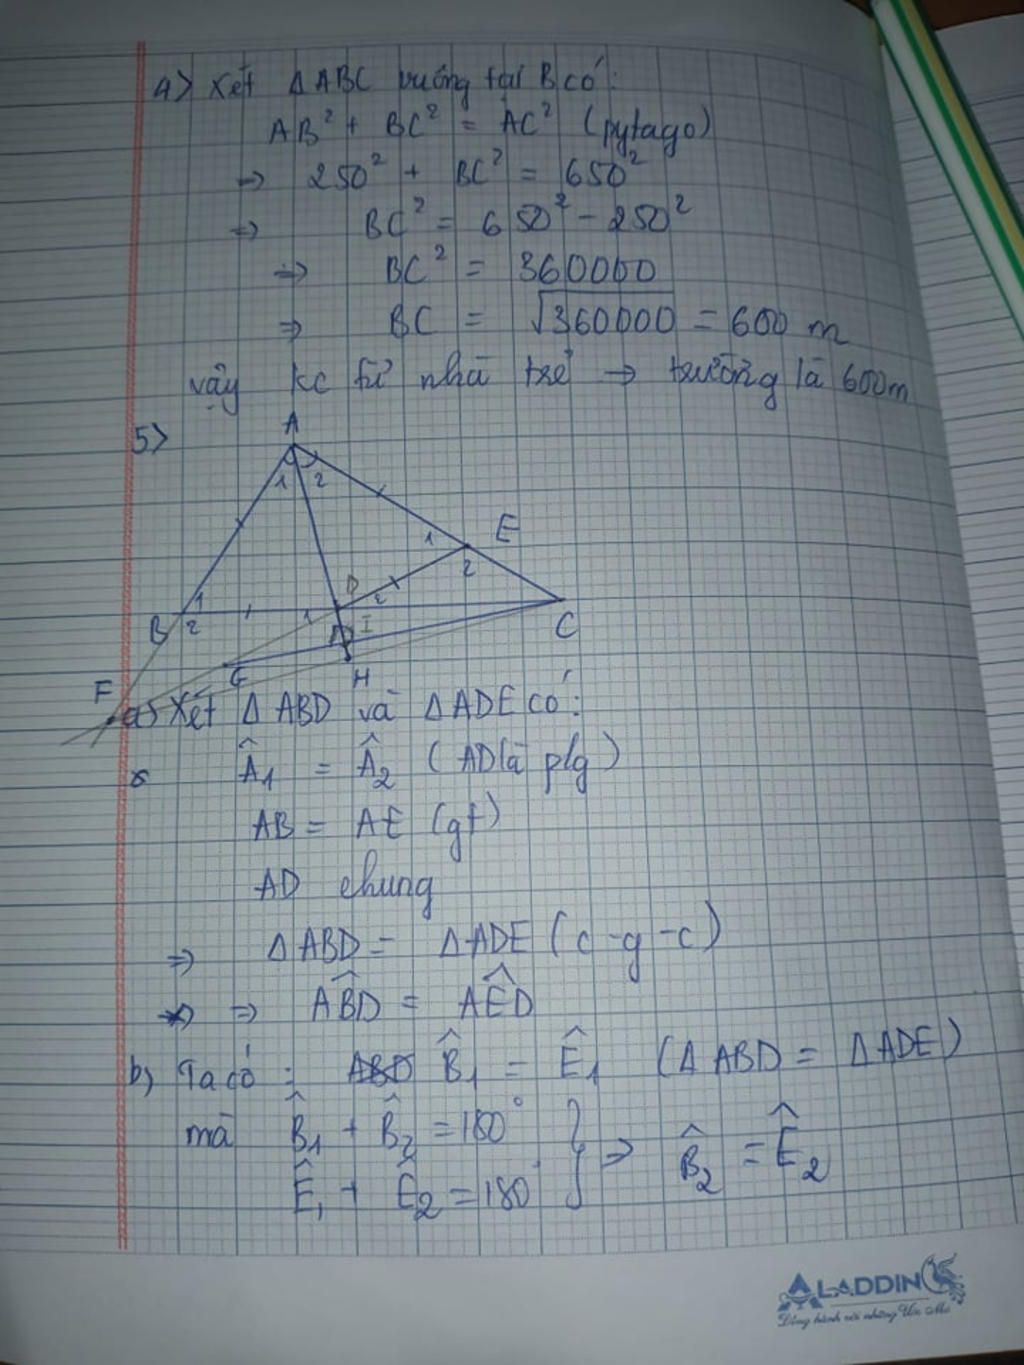 4) Xét ΔABC vuông tại B có:
AB² + BC² = AC² (pytago)
⇒ 250² + BC² = 650²
⇒ BC² = 650² - 250²
⇒ BC² = 360000
⇒ BC = √360000 = 600 m
vậy kc từ nhà trẻ → trường là 600m
5)
A
1 2
E
1
2
D
B 1 2
1 2
I
C
F
G
H
a) Xét ΔABD và ΔADE có:
Â₁ = Â₂ (AD là plg)
AB = AE (gt)
AD chung
⇒ ΔABD = ΔADE (c-g-c)
⇒ ABD̂ = AÊD
b) Ta có: B̂₁ = Ê₁ (ΔABD = ΔADE)
mà B̂₁ + B̂₂ = 180°
Ê₁ + Ê₂ = 180° } ⇒ B̂₂ = Ê₂
ALADDIN
Đồng hành với những Ước Mơ